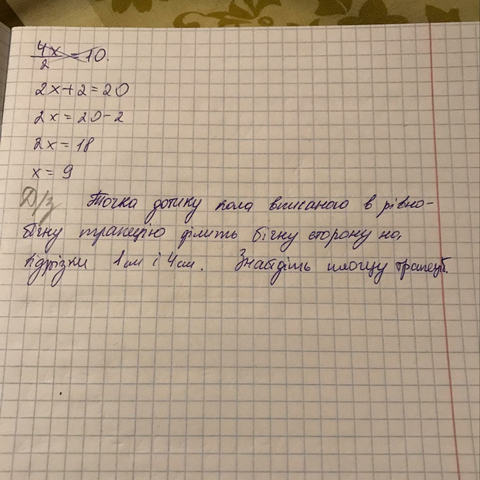 4x/2 = 10.
2x+2=20
2x = 20-2
2x = 18
x = 9
Д/з Точка дотику кола вписаного в рівно-
бічну трапецію ділить бічну сторону на
відрізки 1 см і 4 см. Знайдіть площу трапеції.